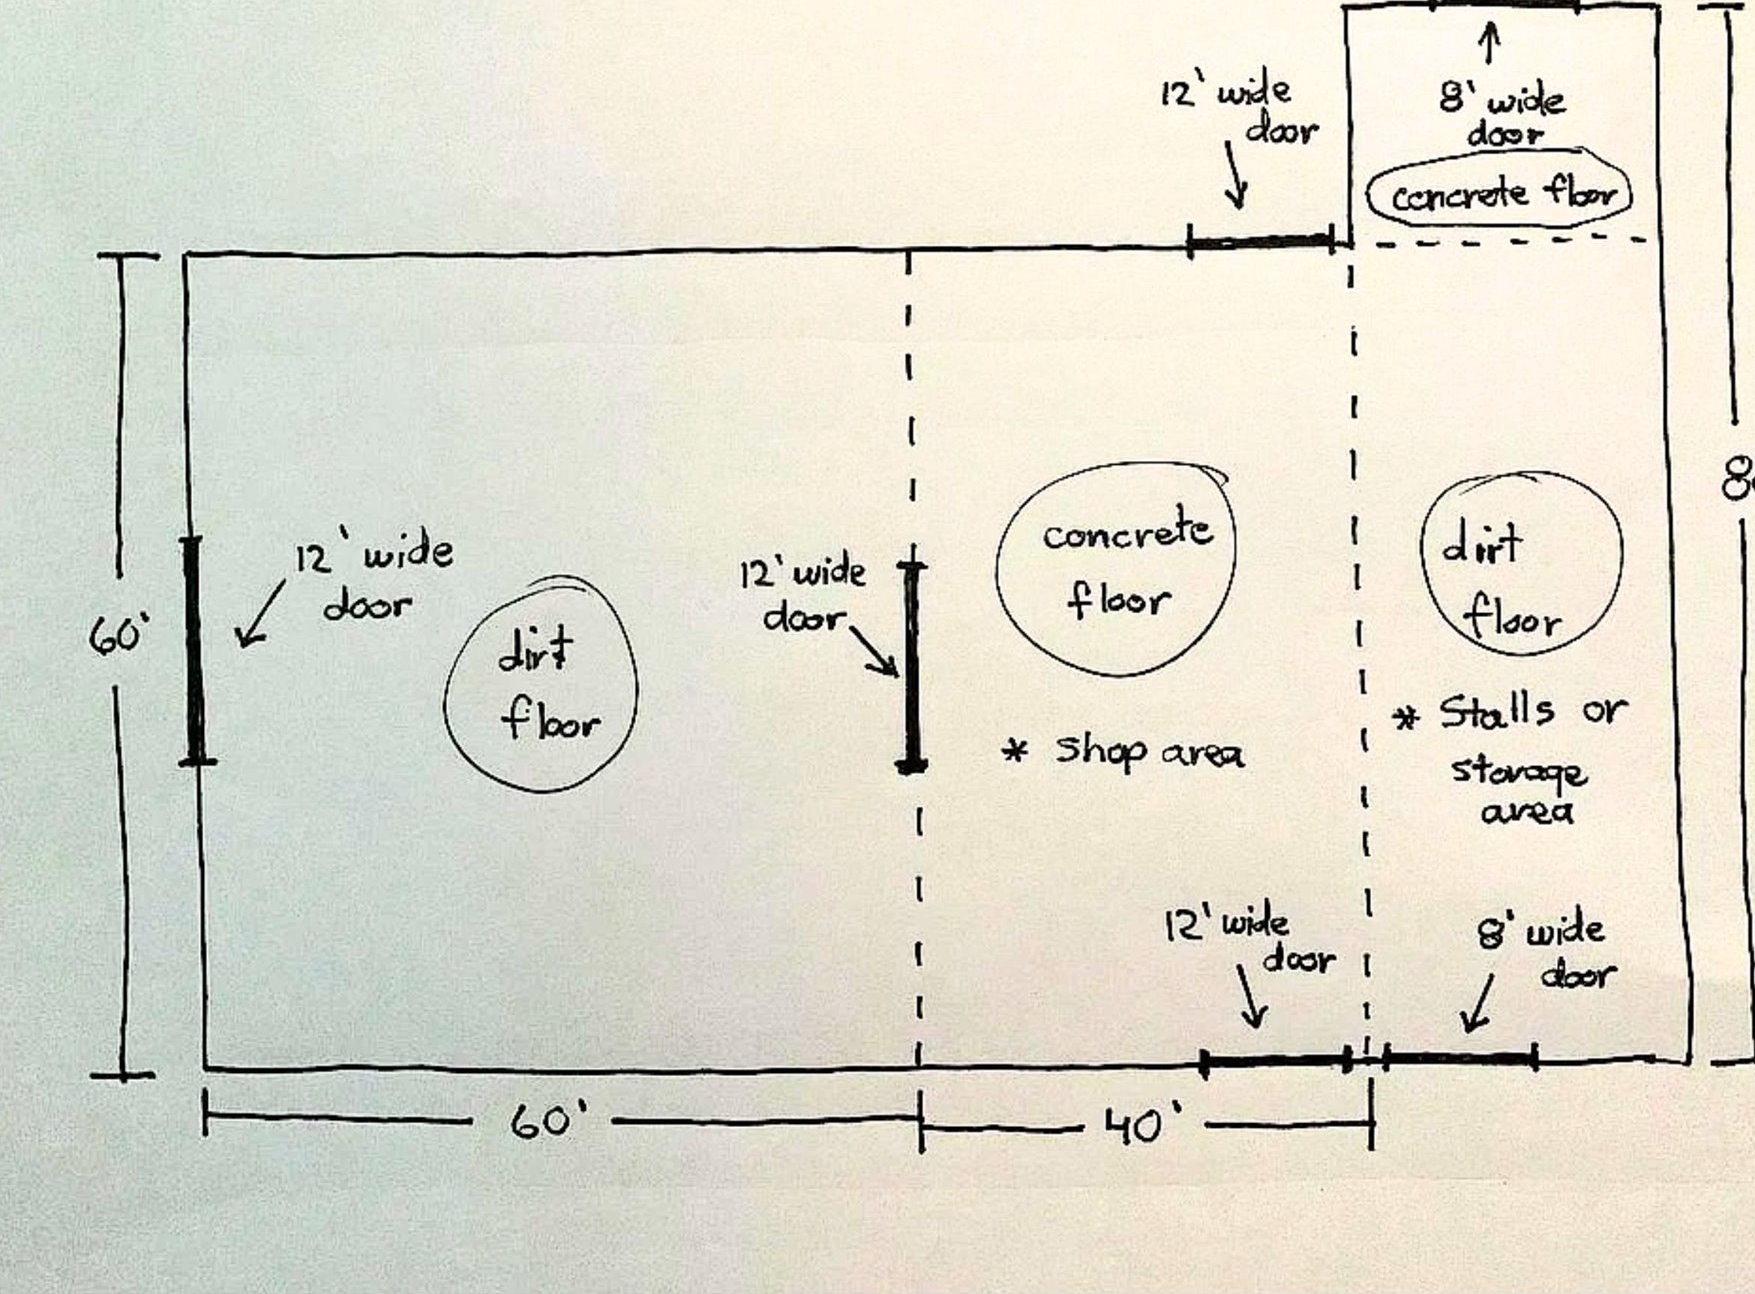 12' wide
door
8' wide
door
concrete floor
60'
12' wide
door
dirt
floor
12' wide
door
concrete
floor
* Shop area
dirt
floor
* Stalls or
storage
area
12' wide
door
8' wide
door
60'
40'